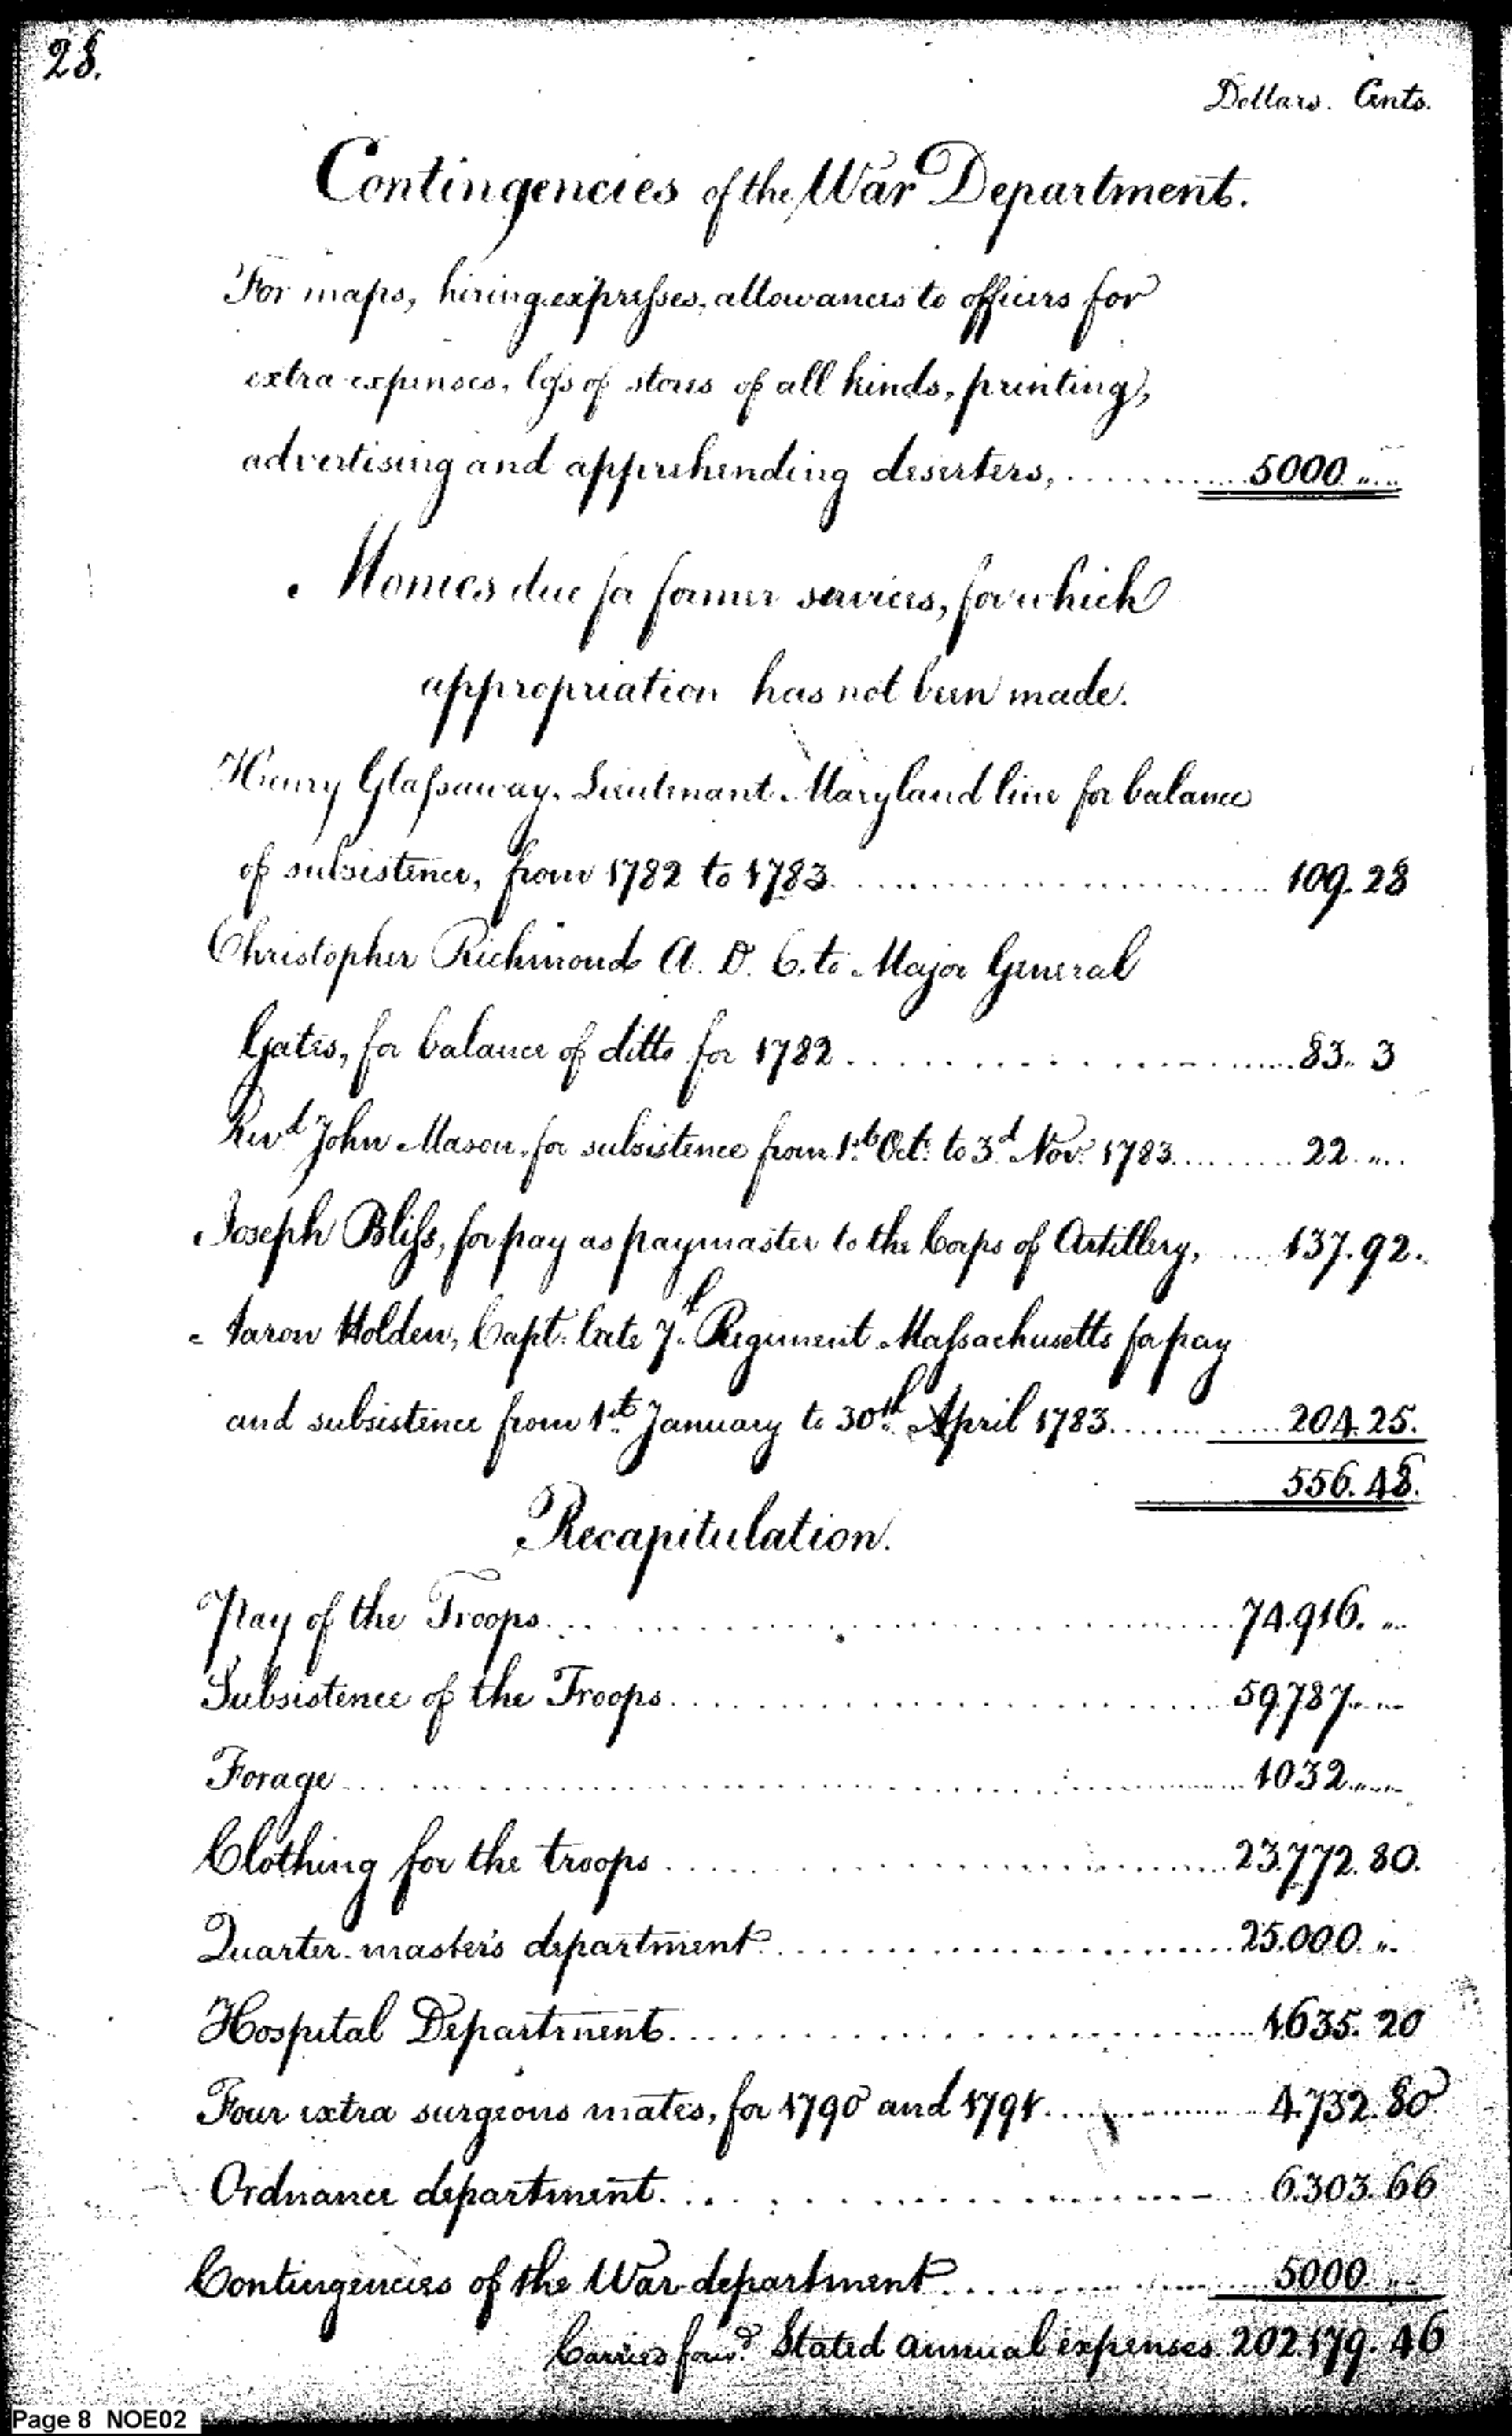 28.
Dollars. Cents.
Contingencies of the War Department.
For maps, hiring expresses, allowances to officers for
extra expenses, loss of stores of all kinds, printing,
advertising and apprehending deserters, ........... 5000 ....
Monies due for former services, for which
appropriation has not been made.
Henry Glassaway, Lieutenant Maryland line for balance
of subsistence, from 1782 to 1783 .................... 109.28
Christopher Richmond A. D. C. to Major General
Gates, for balance of ditto for 1782 .................... 83. 3
Revd John Mason, for subsistence from 1st Oct. to 3d Nov. 1783 ......... 22 ....
Joseph Bliss, for pay as paymaster to the Corps of Artillery, .... 137.92.
Aaron Holden, Capt. late 7th Regiment Massachusetts for pay
and subsistence from 1st January to 30th April 1783 ............ 204.25.
556.48.
Recapitulation.
Pay of the Troops .................... 74.916. ..
Subsistence of the Troops .................... 59.787 ....
Forage .................... 1032 ....
Clothing for the troops .................... 23.772.80.
Quarter-master's department .................... 25.000. ..
Hospital Department .................... 1.635.20
Four extra surgeons mates, for 1790 and 1791 ............ 4.732.80
Ordnance department .................... 6.303.66
Contingencies of the War department .................... 5000 ....
Carried forwd Stated annual expenses 202.179.46
Page 8 NOE02